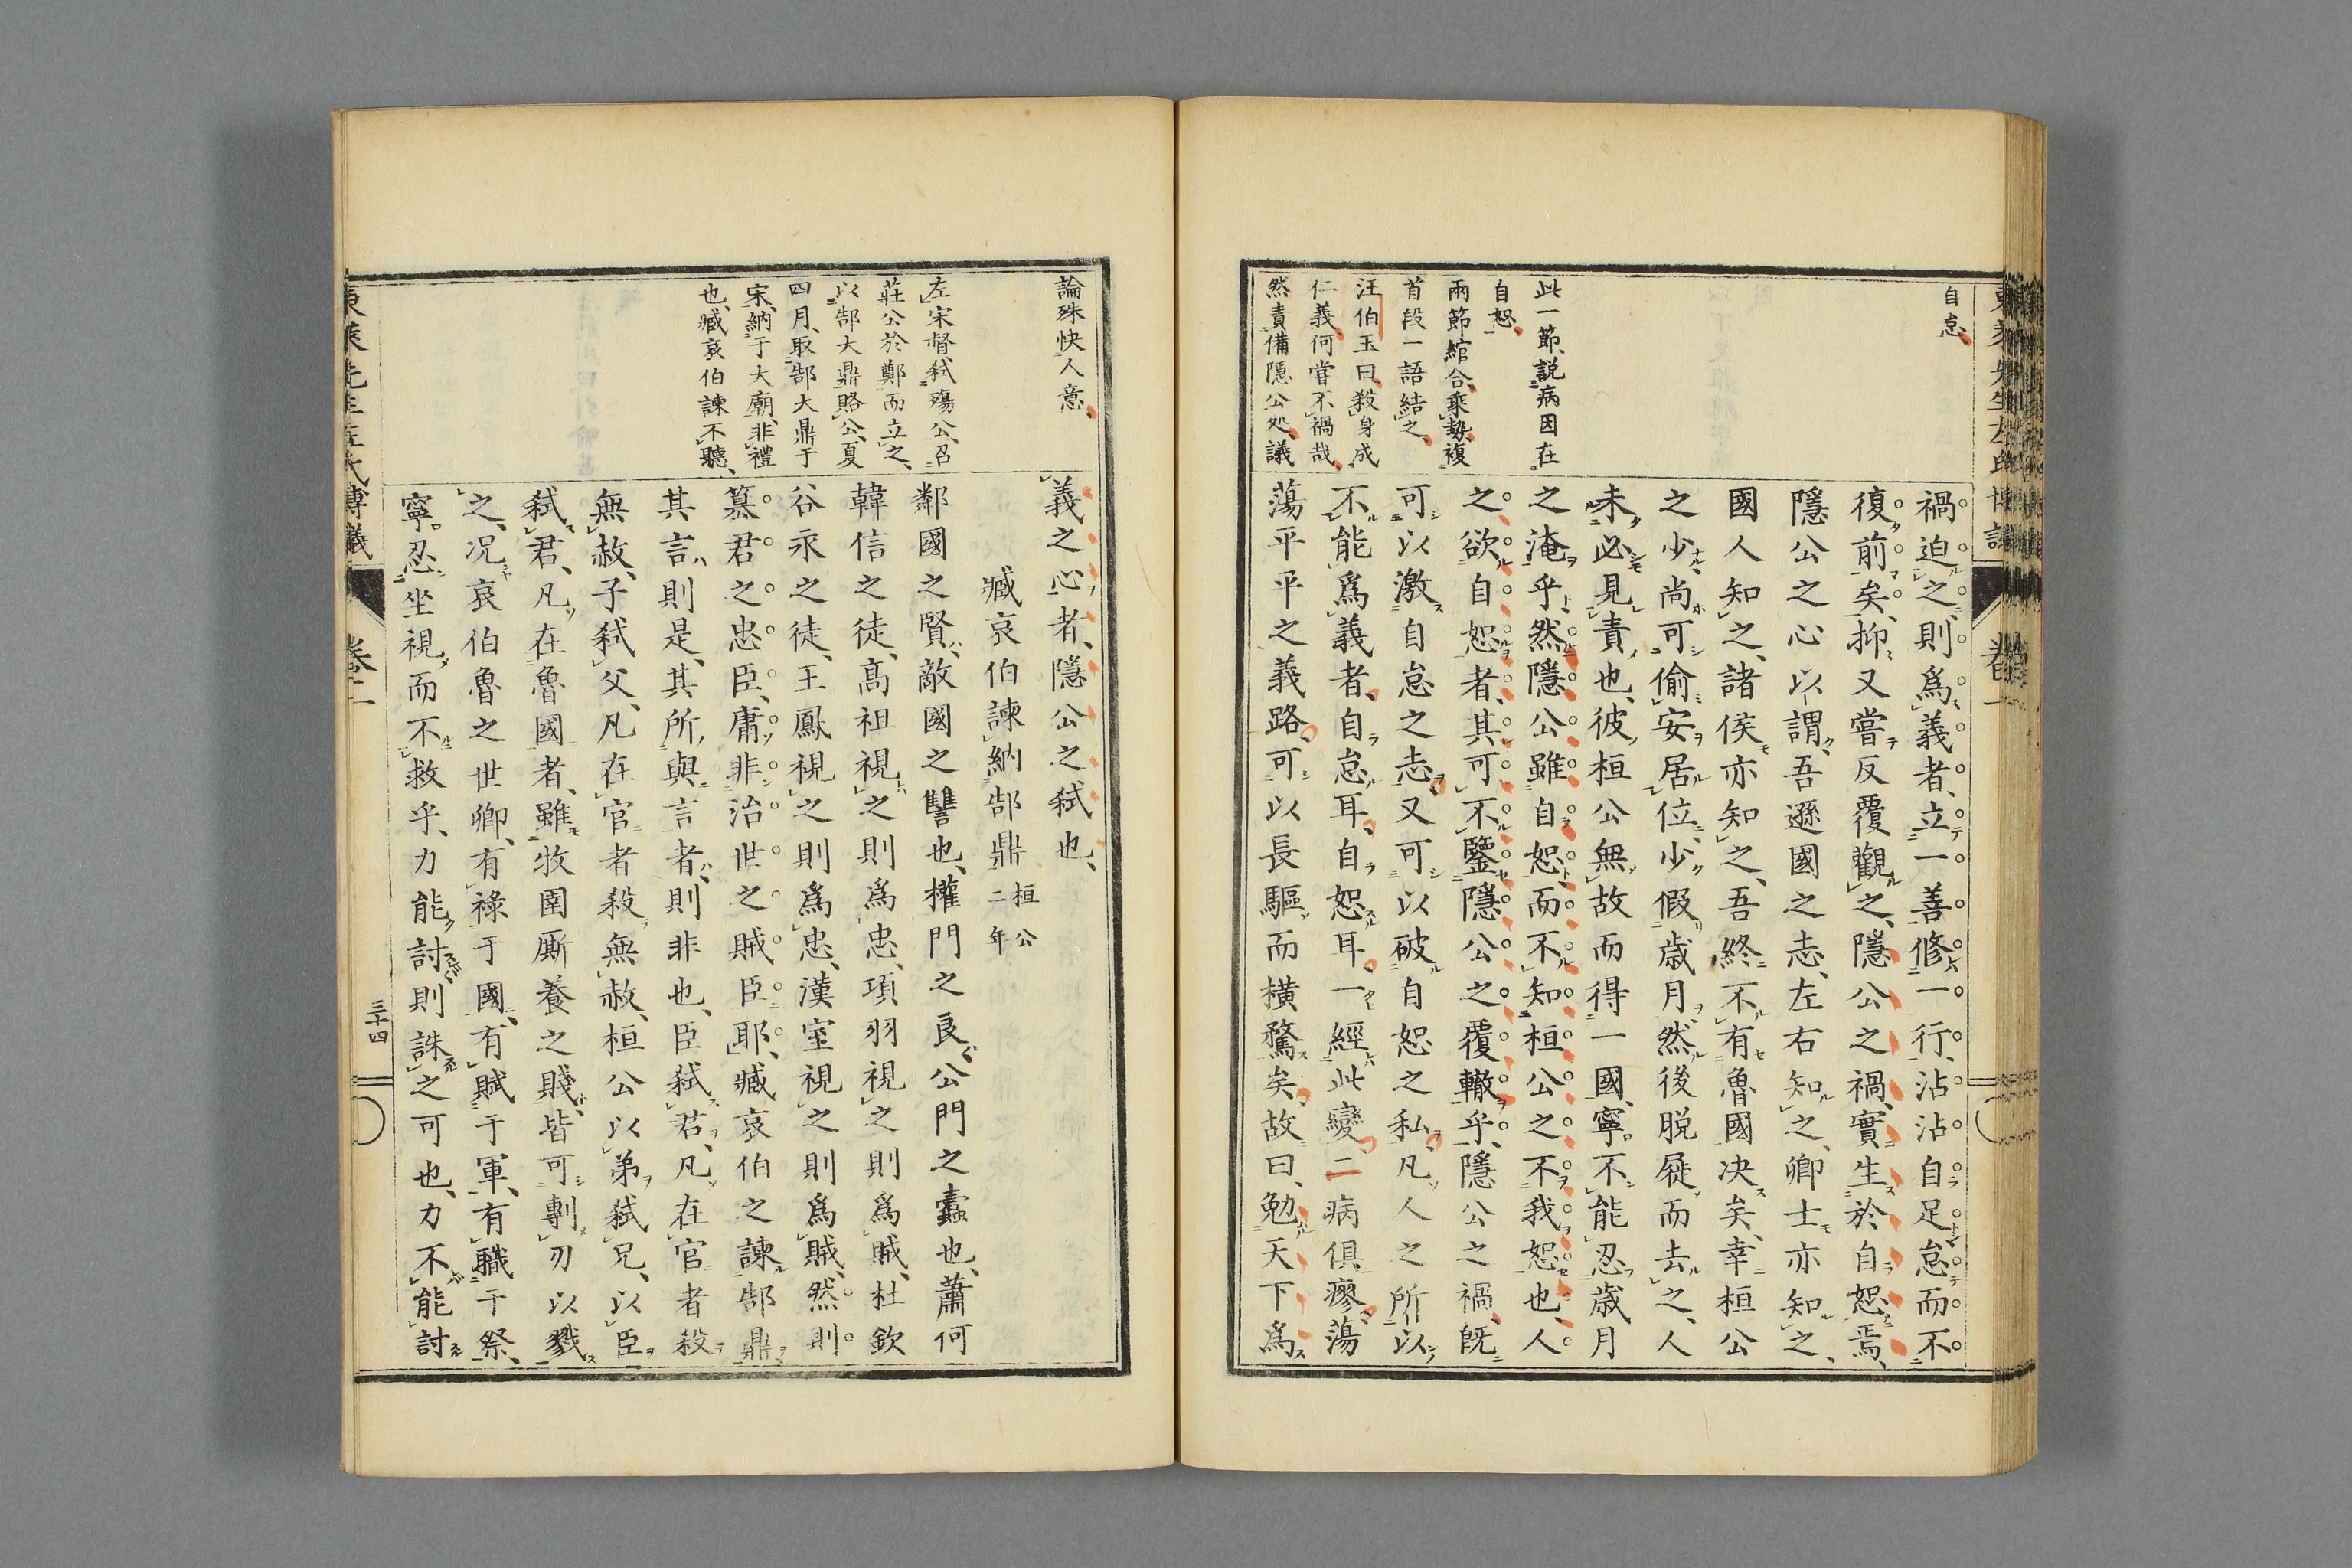 自怠
此一節、説病因在
自恕
兩節綰合、乘勢複
首段一語結之、
汪伯玉曰、殺身成
仁義何嘗不禍哉、
然責備隱公処議
禍迫之、則爲義者、立一善修一行、沾沾自足怠而不
復前矣、抑又嘗反覆觀之、隱公之禍、實生於自恕焉、
隱公之心以謂、吾遜國之志、左右知之、卿士亦知之、
國人知之、諸侯亦知之、吾終不有魯國决矣、幸桓公
之少、尚可偷安居位、少假歳月、然後脱屣而去之、人
未必見責也、彼桓公無故而得一國、寧不能忍歳月
之淹乎、然隱公雖自恕、而不知桓公之不我恕也、人
之欲自恕者、其可不鑒隱公之覆轍乎、隱公之禍、旣
可以激自怠之志、又可以破自恕之私、凡人之所以
不能爲義者、自怠耳、自恕耳、一經此變、二病俱瘳、蕩
蕩平平之義路、可以長驅而橫騖矣、故曰、勉天下爲
東萊先生左氏博議
卷一
論殊快人意、
左宋督弑殤公、召
莊公於鄭而立之、
以郜大鼎賂公、夏
四月、取郜大鼎于
宋、納于大廟、非禮
也、臧哀伯諫不聽、
義之心者、隱公之弑也、
臧哀伯諫納郜鼎 桓公二年
鄰國之賢、敵國之讐也、權門之良、公門之蠹也、蕭何
韓信之徒、髙祖視之則爲忠、項羽視之則爲賊、杜欽
谷永之徒、王鳳視之則爲忠、漢室視之則爲賊、然則
簒君之忠臣、庸非治世之賊臣耶、臧哀伯之諫郜鼎、
其言、則是、其所與言者、則非也、臣弑君、凡在官者殺
無赦、子弑父、凡在官者殺無赦、桓公以弟弑兄、以臣
弑君、凡在魯國者、雖牧圉厮養之賤、皆可剸刃以戮
之、况哀伯魯之世卿、有祿于國、有賦于軍、有職于祭、
寧忍坐視而不救乎、力能討則誅之可也、力不能討
東萊先生左氏博議
卷一
三十四